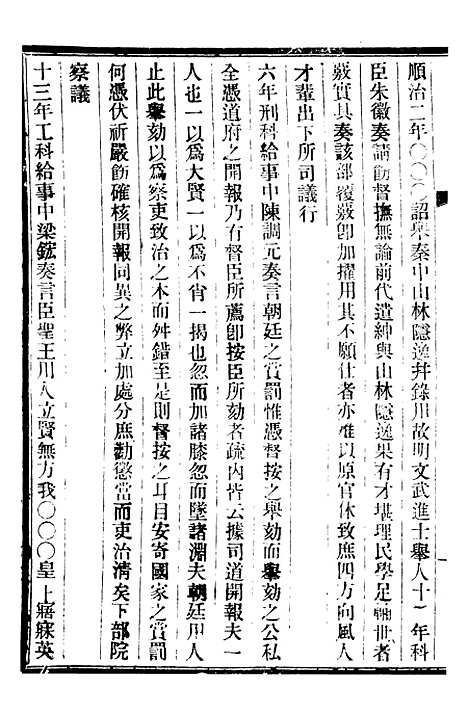 順治二年〇〇〇詔舉秦中山林隱逸幷錄用故明文武進士舉人十一年科
臣朱徽奏請飭督撫無論前代遺紳與山林隱逸果有才堪理民學足輔世者
覈實具奏該部覆覈卽加擢用其不願仕者亦難以原官休致庶四方向風人
才輩出下所司議行
六年刑科給事中陳調元奏言朝廷之賞罰惟憑督按之舉劾而舉劾之公私
全憑道府之開報乃有督臣所薦卽按臣所劾者疏內皆云據司道開報夫一
人也一以爲大賢一以爲不肖一揭也忽而加諸膝忽而墜諸淵夫朝廷用人
止此舉劾以爲察吏致治之本而舛錯至是則督按之耳目安寄國家之賞罰
何憑伏祈嚴飭確核開報同異之弊立加處分庶勸懲當而吏治淸矣下部院
察議
十三年工科給事中梁鋐奏言臣聖王用人立賢無方我〇〇〇皇上寤寐英